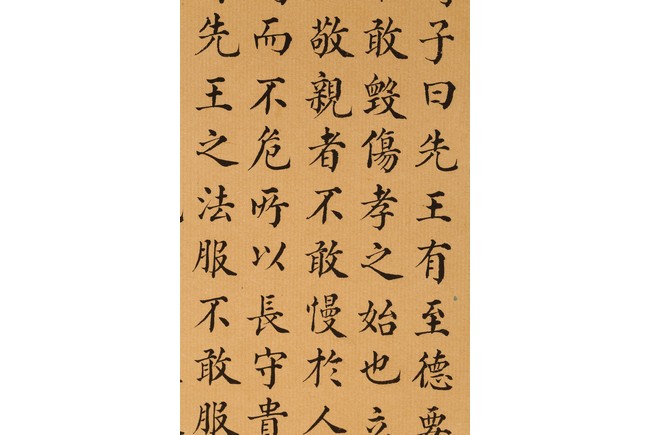 子曰先王有至德要
敢毀傷孝之始也立
敬親者不敢慢於人
而不危所以長守貴
先王之法服不敢服